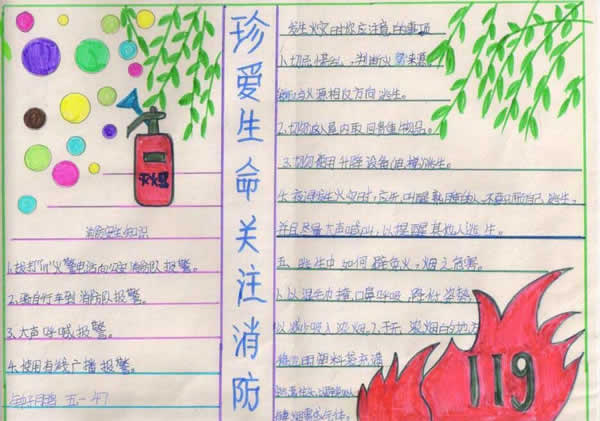 珍爱生命关注消防
灭火器
消防安全知识
1.拨打"119"火警电话向公安消防队报警。
2.骑自行车到消防队报警。
3.大声呼喊报警。
4.使用有线广播报警。
五一4
发生火灾时你应注意的事项
1.切忌慌乱,判断火来源
与火源相反方向逃生。
2.切勿返回屋内取回贵重物品。
3.切勿使用升降设备(电梯)逃生。
4.夜间发生火灾时,应叫醒熟睡的人,不要只顾自己逃生,
并且尽量大声喊叫,以提醒其他人逃生。
五.逃生中如何避免火,烟之危害。
1.以湿毛巾掩口鼻呼吸,降低姿势,
以减少吸入浓烟。2.在无浓烟的地方
将透明塑料袋充满
119